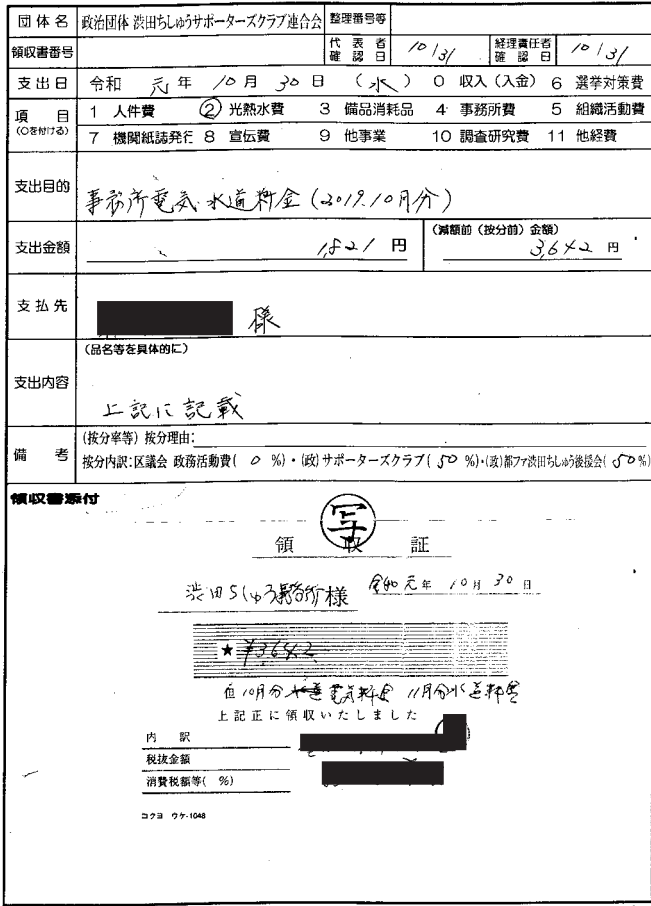 団体名 政治団体 渋田ちしゅうサポーターズクラブ連合会 整理番号等
領収書番号 代表者確認日 10/31 経理責任者確認日 10/31
支出日 令和 元年 10月 30日 (水) 0 収入(入金) 6 選挙対策費
項目 (○を付ける) 1 人件費 ② 光熱水費 3 備品消耗品 4 事務所費 5 組織活動費
7 機関紙誌発行 8 宣伝費 9 他事業 10 調査研究費 11 他経費
支出目的 事務所電気 水道料金(2019.10月分)
支出金額 1,821 円 (減額前(按分前)金額) 3,642 円
支払先 様
支出内容 (品名等を具体的に)
上記に記載
備考 (按分率等) 按分理由:
按分内訳:区議会 政務活動費( 0 %)・(政)サポーターズクラブ( 50 %)・(政)都ファ渋田ちしゅう後援会( 50 %)
領収書添付
写
領収証
渋田ちしゅう事務所様 令和元年 10月 30日
★ ¥3642
但 10月分 電気料金 11月分水道料金
上記正に領収いたしました
内訳
税抜金額
消費税額等( %)
コクヨ ウケ-1048